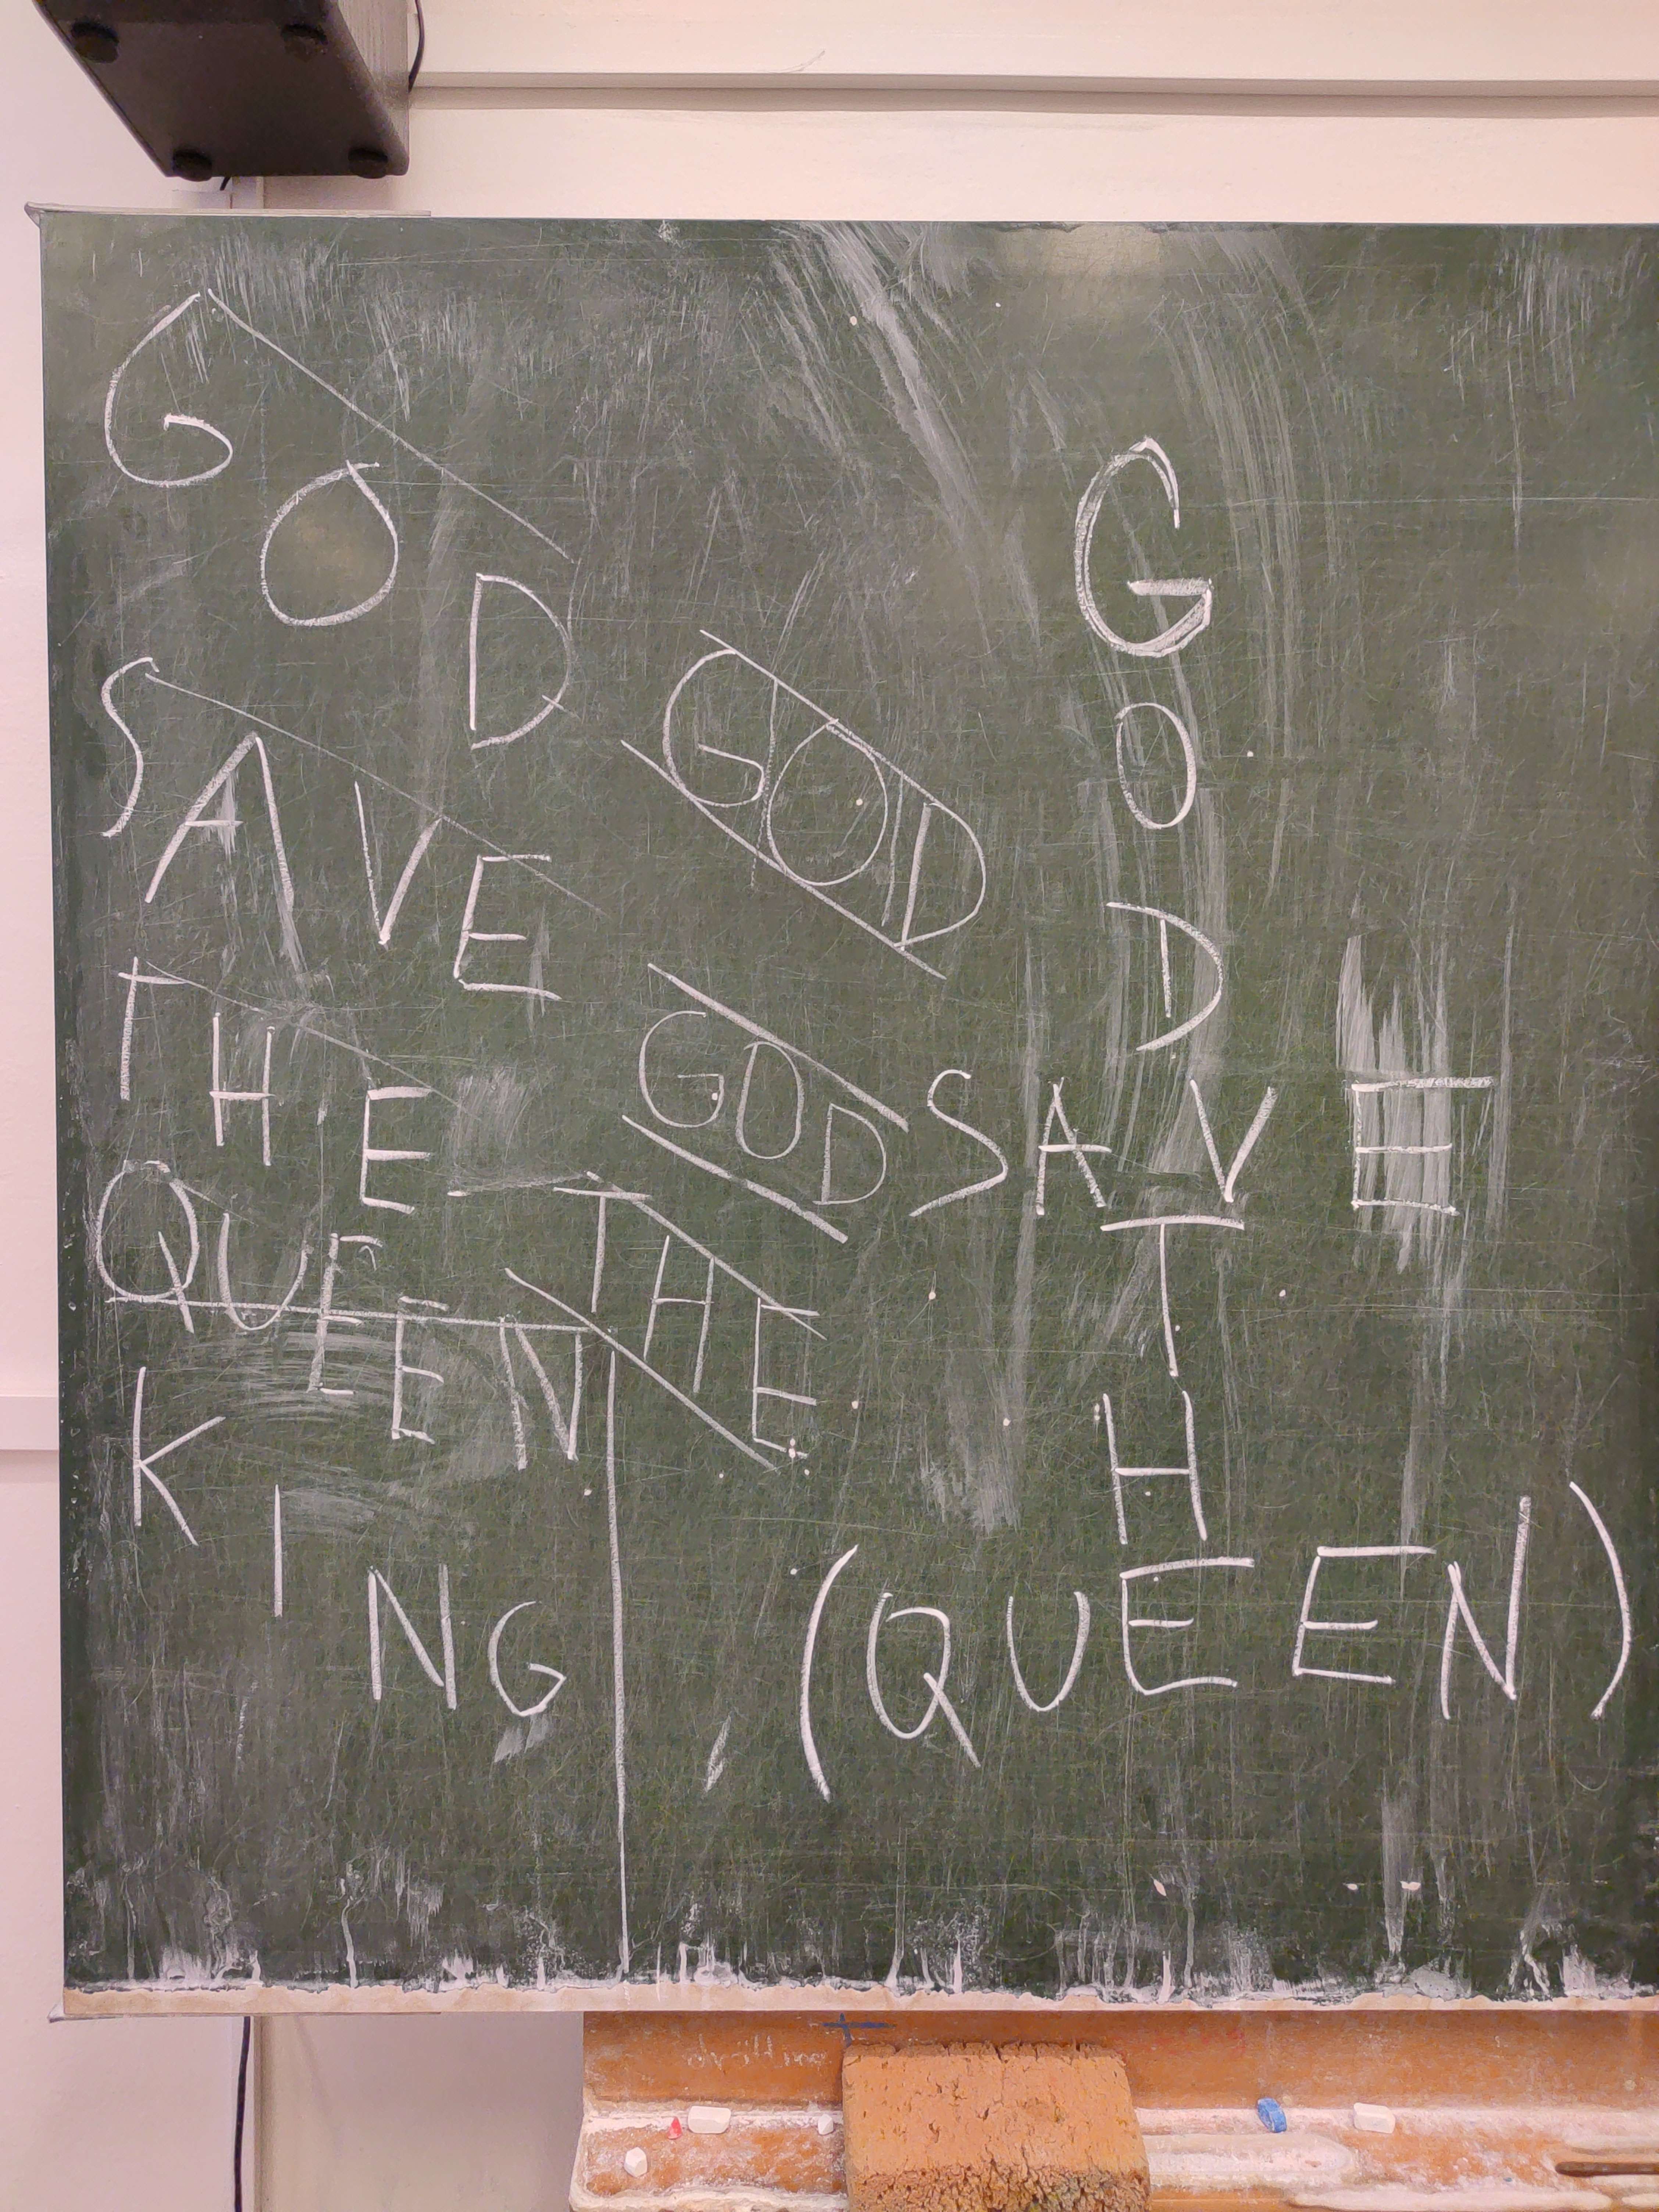 GOD
SAVE
THE
QUEEN
KING
GOD
GOD
THE
GOD
SAVE
THE
(QUEEN)